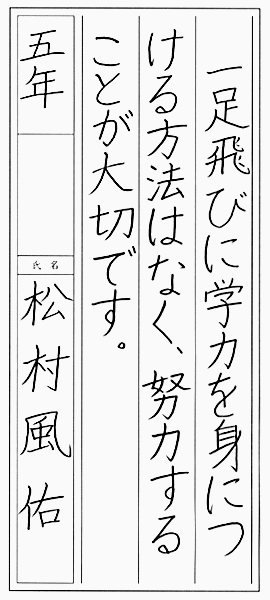 一足飛びに学力を身につ
ける方法はなく、努力する
ことが大切です。
五年
氏名
松村風佑